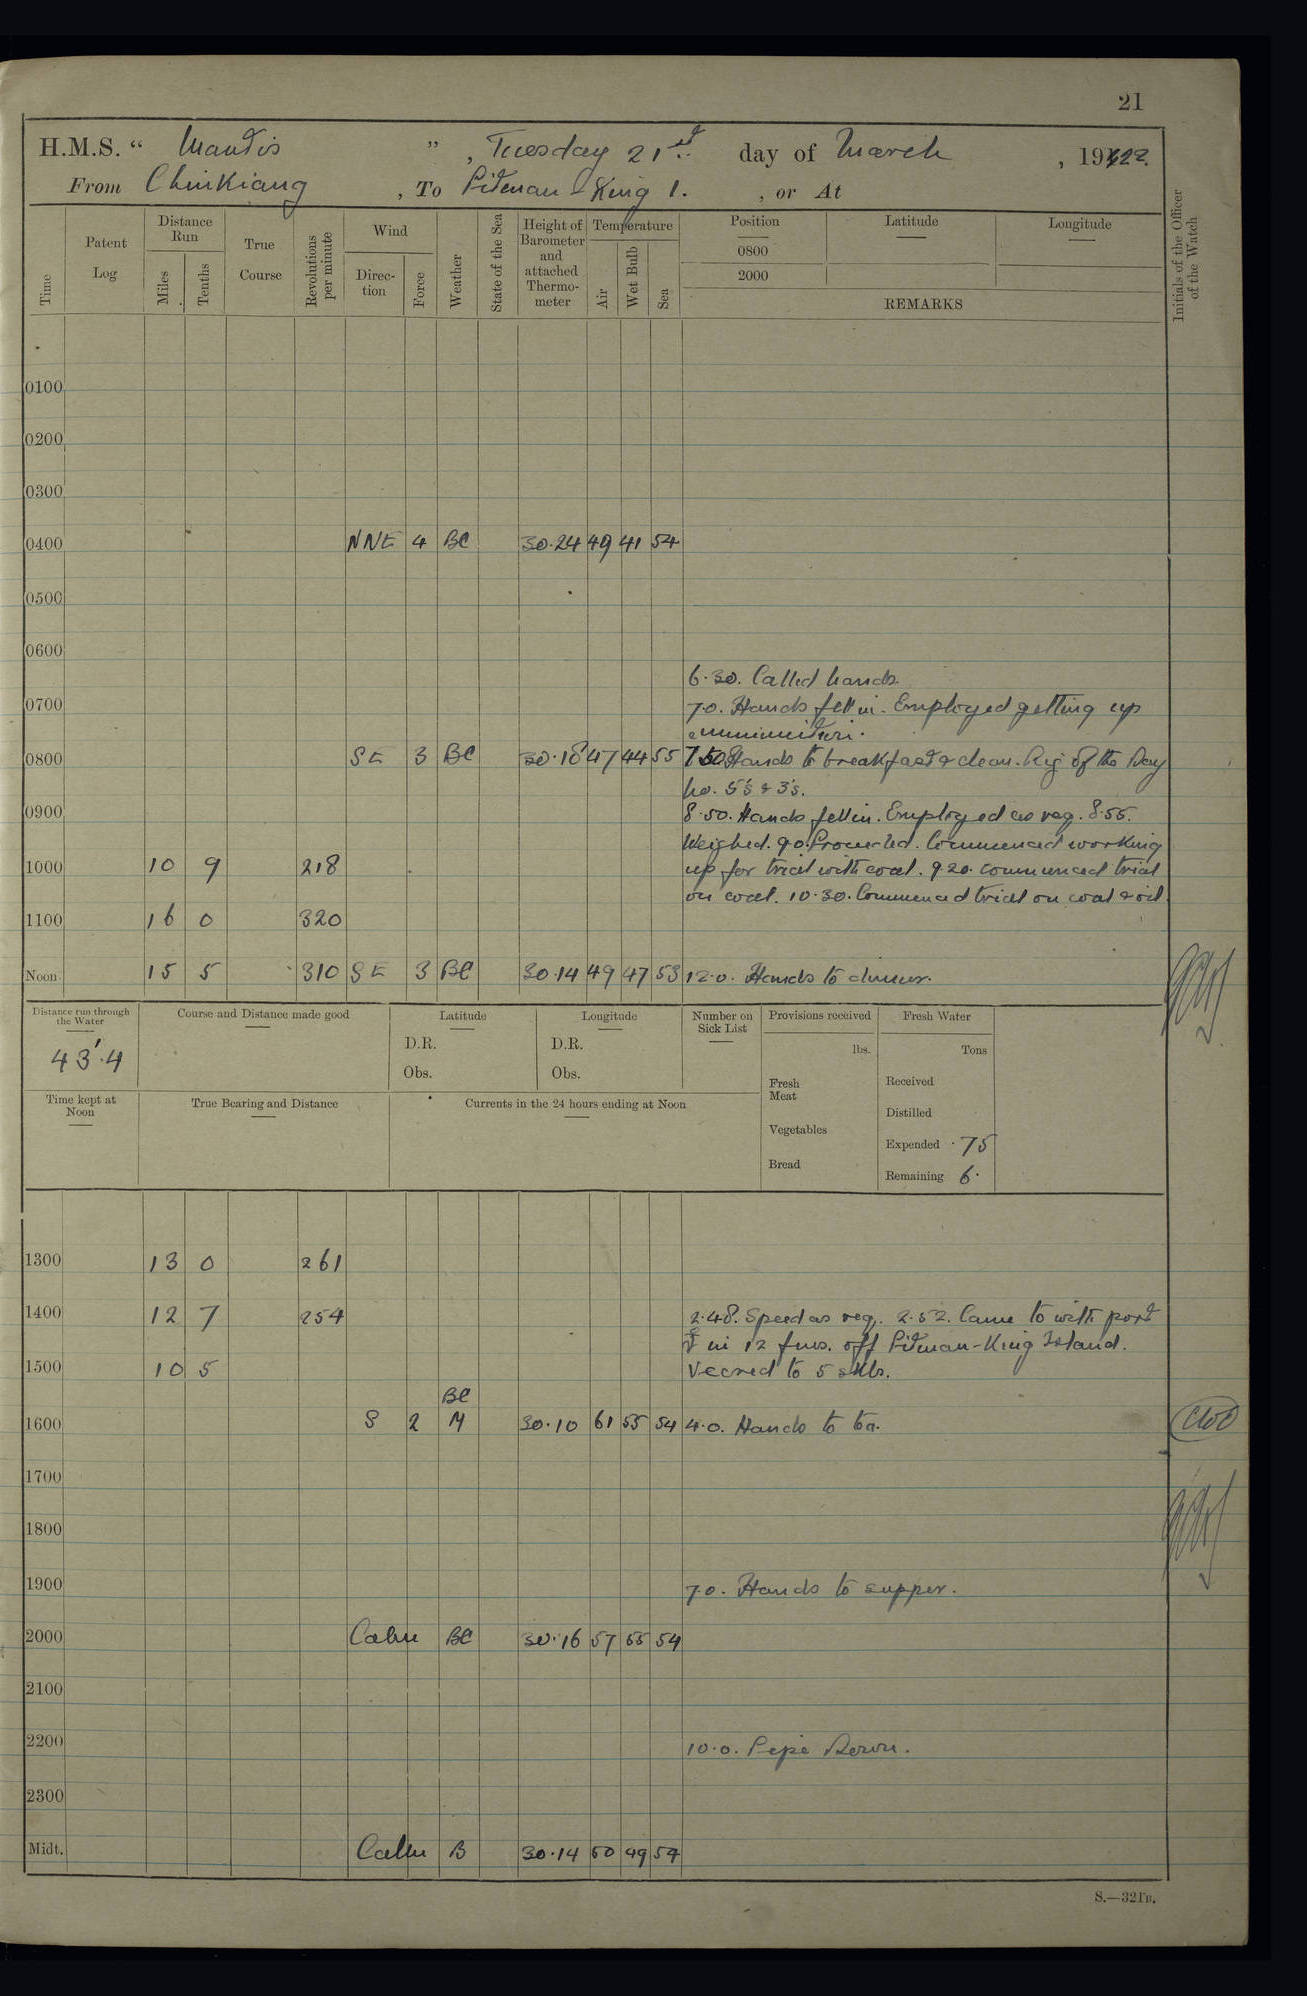 21
H.M.S. “ Mantis ” , Tuesday 21st day of March , 1922.
From Chinkiang , To Pitman-King I. , or At
Time
Patent Log
Distance Run
Miles
Tenths
True Course
Revolutions per minute
Wind
Direction
Force
Weather
State of the Sea
Height of Barometer and attached Thermometer
Temperature
Air
Wet Bulb
Sea
Position
Latitude
Longitude
0800
2000
REMARKS
Initials of the Officer of the Watch
0100
0200
0300
0400 NNE 4 BC 30.24 49 41 54
0500
0600
6.30. Called hands.
0700 7.0. Hands fell in. Employed getting up
ammunition.
0800 SE 3 BC 30.18 47 44 55 7.50 Hands to breakfast & clean. Rig of the Day
No. 5's & 3's.
0900 8.50. Hands fell in. Employed as req. 8.55.
Weighed. 9.0. Proceeded. Commenced working
1000 10 9 218 up for trial with coal. 9.20. commenced trial
on coal. 10.30. Commenced trial on coal & oil.
1100 16 0 320
Noon 15 5 310 SE 3 BC 30.14 49 47 53 12.0. Hands to dinner.
Distance run through the Water
43'.4
Course and Distance made good
Latitude
D.R.
Obs.
Longitude
D.R.
Obs.
Number on Sick List
Provisions received
lbs.
Fresh Meat
Vegetables
Bread
Fresh Water
Tons
Received
Distilled
Expended .75
Remaining 6.
Time kept at Noon
True Bearing and Distance
Currents in the 24 hours ending at Noon
1300 13 0 261
1400 12 7 254 2.48. Speed as req. 2.52. Came to with port
in 12 fms. off Pitman-King Island.
1500 10 5 Veered to 5 shls.
BC
1600 S 2 M 30.10 61 55 54 4.0. Hands to tea.
1700
1800
1900 7.0. Hands to supper.
2000 Calm BC 30.16 57 55 54
2100
2200 10.0. Pipe Down.
2300
Midt. Calm B 30.14 50 49 54
S.—321B.